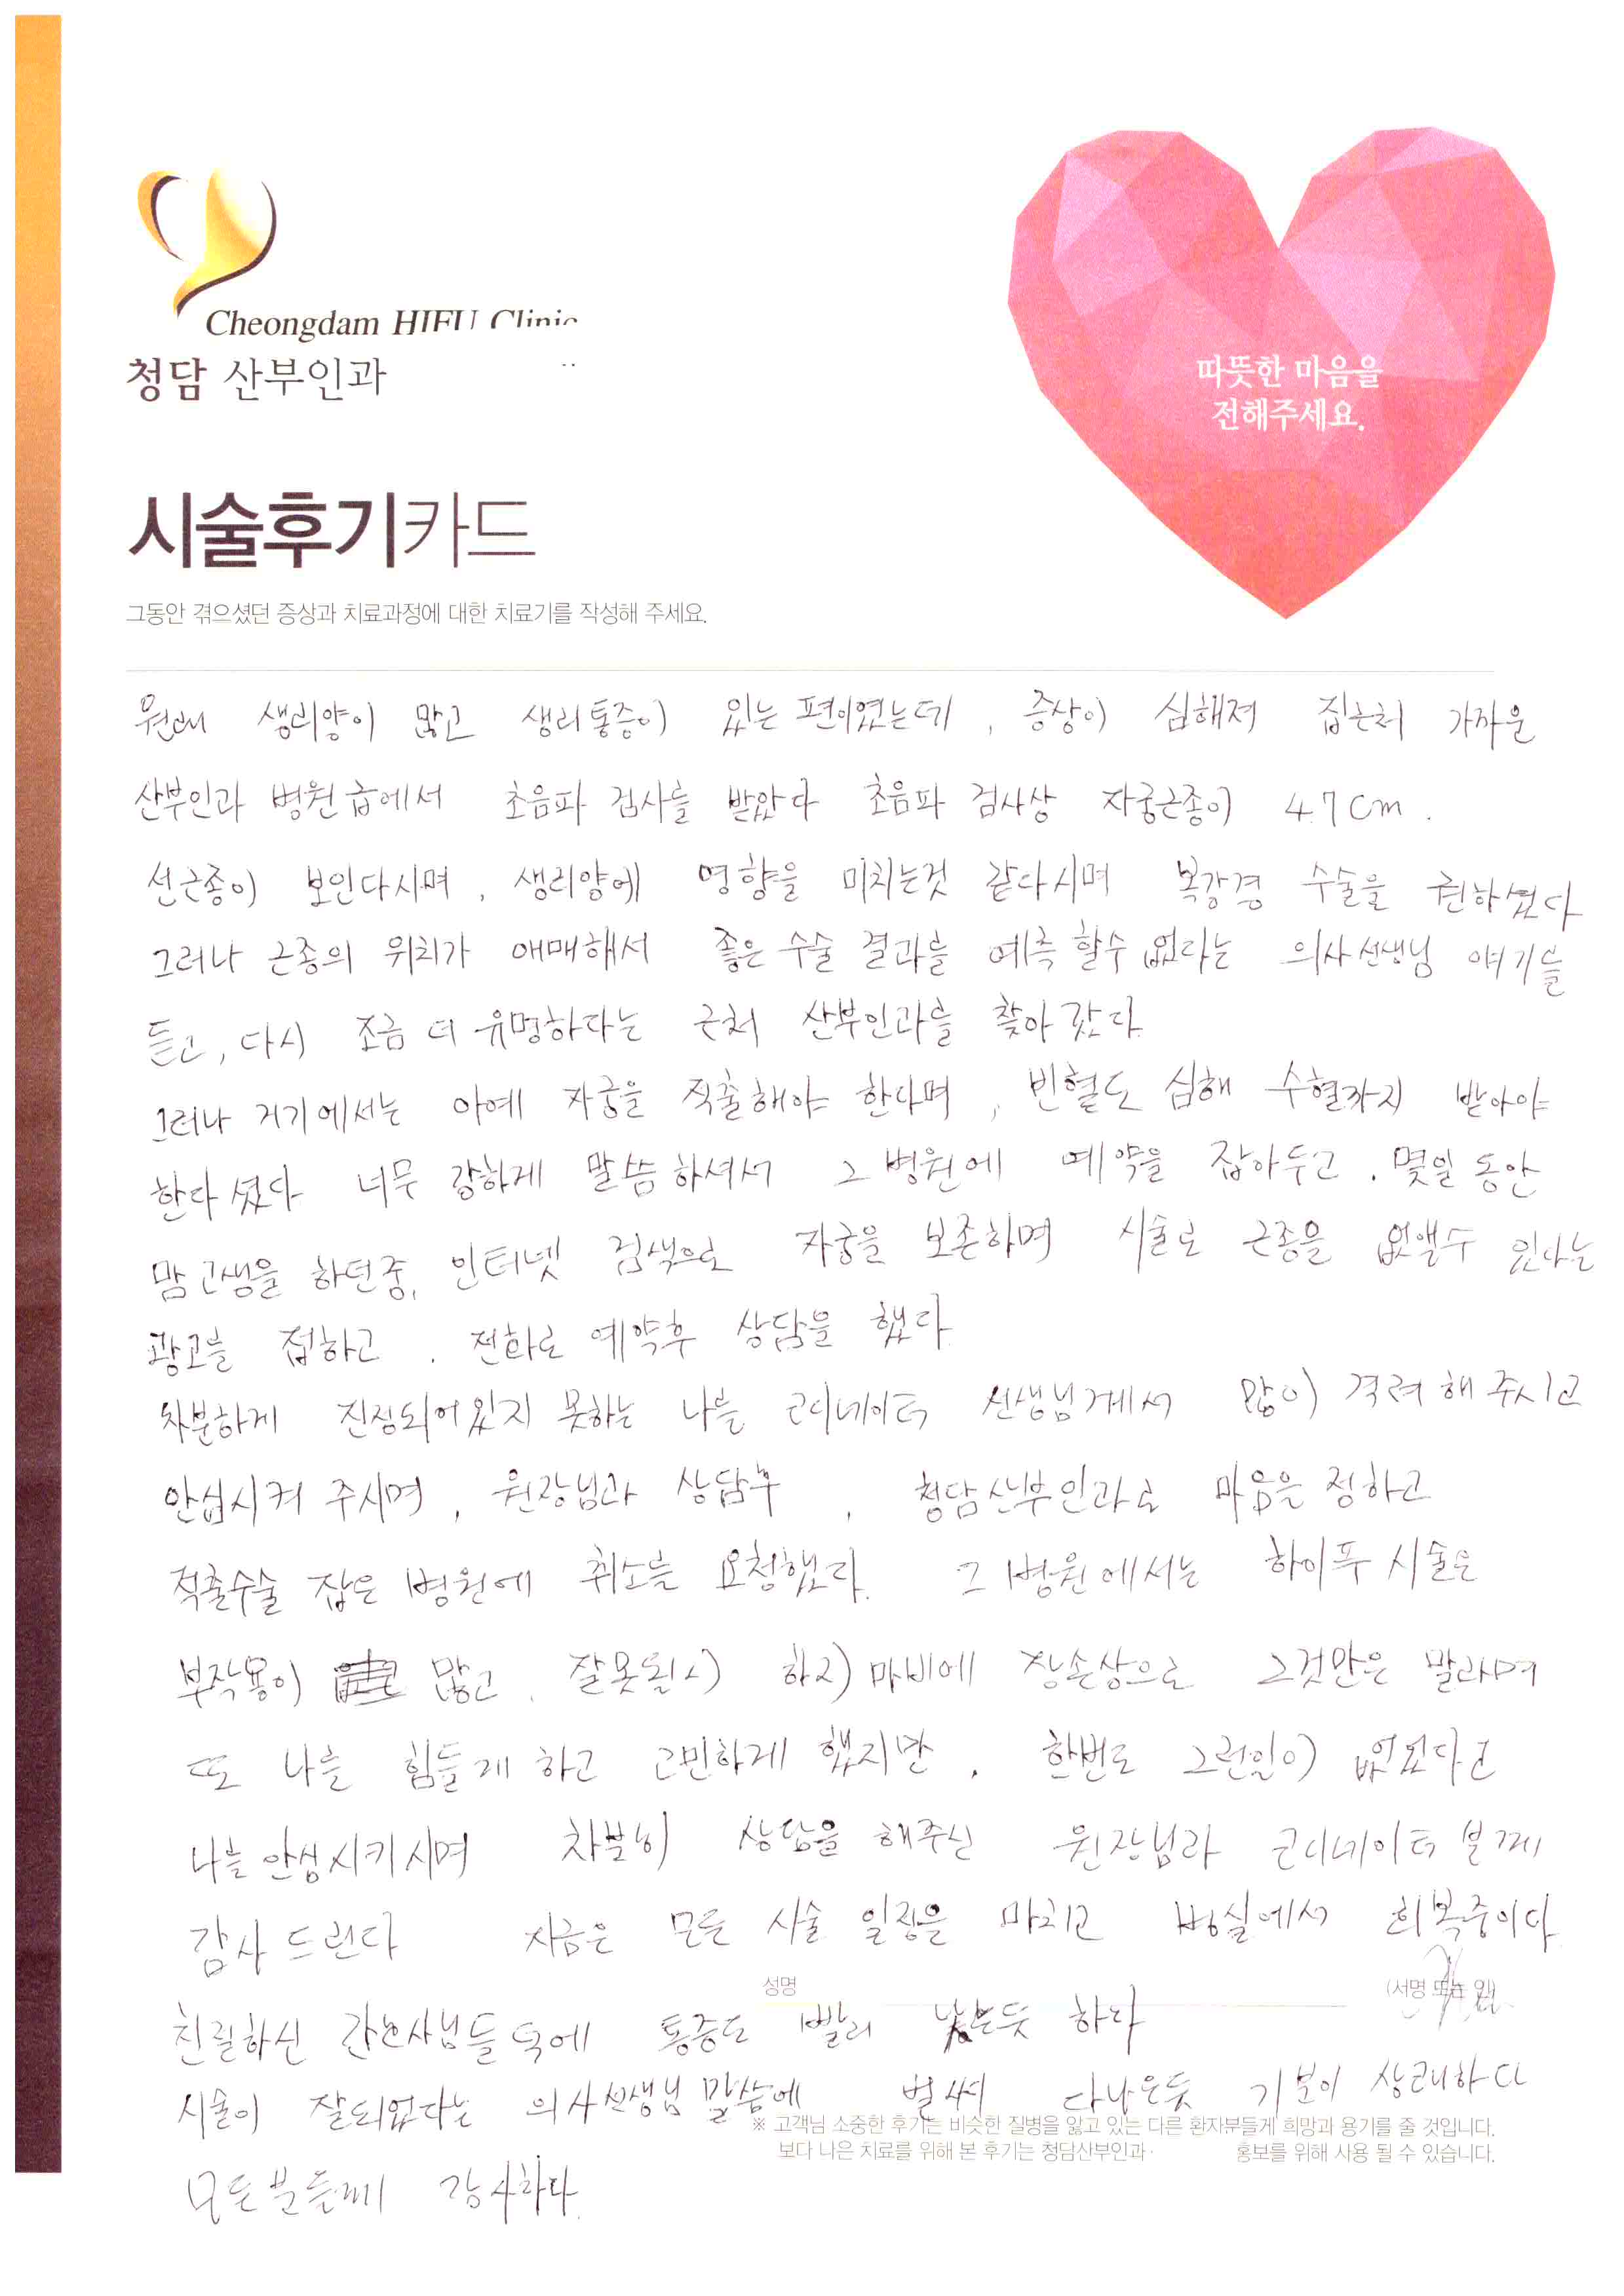 Cheongdam HIFU Clinic
청담 산부인과
따뜻한 마음을
전해주세요.
시술후기카드
그동안 겪으셨던 증상과 치료과정에 대한 치료기를 작성해 주세요.
원래 생리양이 많고 생리통증이 있는 편이였는데, 증상이 심해져 집근처 가까운
산부인과 병원급에서 초음파 검사를 받았다 초음파 검사상 자궁근종이 4.7cm.
선근종이 보인다시며, 생리양에 영향을 미치는것 같다시며 복강경 수술을 권하셨다
그러나 근종의 위치가 애매해서 좋은 수술 결과를 예측 할수 없다는 의사선생님 얘기를
듣고, 다시 조금 더 유명하다는 근처 산부인과를 찾아 갔다.
그러나 거기에서는 아예 자궁을 적출해야 한다며, 빈혈도 심해 수혈까지 받아야
한다 셨다 너무 강하게 말씀 하셔서 그 병원에 예약을 잡아두고. 몇일 동안
맘고생을 하던중, 인터넷 검색으로 자궁을 보존하며 시술로 근종을 없앨수 있다는
광고를 접하고. 전화로 예약후 상담을 했다
차분하게 진정되어있지 못하는 나를 코디네이터 선생님께서 많이 격려 해 주시고
안심시켜 주시며, 원장님과 상담후, 청담산부인과로 마음을 정하고
적출수술 잡은 병원에 취소를 요청했다. 그 병원에서는 하이푸 시술은
부작용이 많고, 잘못될시 하지마비에 장손상으로 그것만은 말라며
또 나를 힘들게 하고 고민하게 했지만, 한번도 그런일이 없었다고
나를 안심시키시며 차분히 상담을 해주신 원장님과 코디네이터 분께
감사 드린다 지금은 모든 시술 일정을 마치고 병실에서 회복중이다
성명
(서명 또는 인)
친절하신 간호사님들 덕에 통증도 빨리 낫는듯 하다
시술이 잘되었다는 의사선생님 말씀에 벌써 다나은듯 기분이 상쾌하다
※ 고객님 소중한 후기는 비슷한 질병을 앓고 있는 다른 환자분들게 희망과 용기를 줄 것입니다.
보다 나은 치료를 위해 본 후기는 청담산부인과· 홍보를 위해 사용 될 수 있습니다.
모든분들께 감사하다.